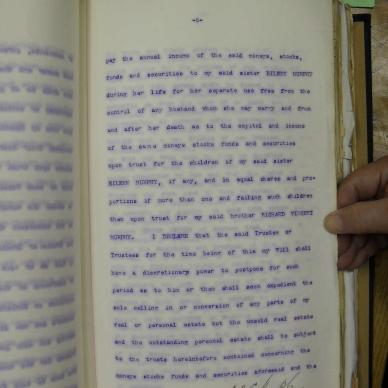 -5-
pay the annual income of the said moneys, stocks,
funds and securities to my said sister EILEEN MURPHY
during her life for her separate use free from the
control of any husband whom she may marry and from
and after her death as to the capital and income
of the same moneys stocks funds and securities
upon trust for the children of my said sister
EILEEN MURPHY, if any, and in equal shares and pro-
portions if more than one and failing such children
then upon trust for my said brother RICHARD VINCENT
MURPHY. I DECLARE that the said Trustee or
Trustees for the time being of this my Will shall
have a discretionary power to postpone for such
period as to him or them shall seem expedient the
sale calling in or conversion of any parts of my
real or personal estate but the unsold real estate
and the outstanding personal estate shall be subject
to the trusts hereinbefore contained concerning the
moneys stocks funds and securities aforesaid and the